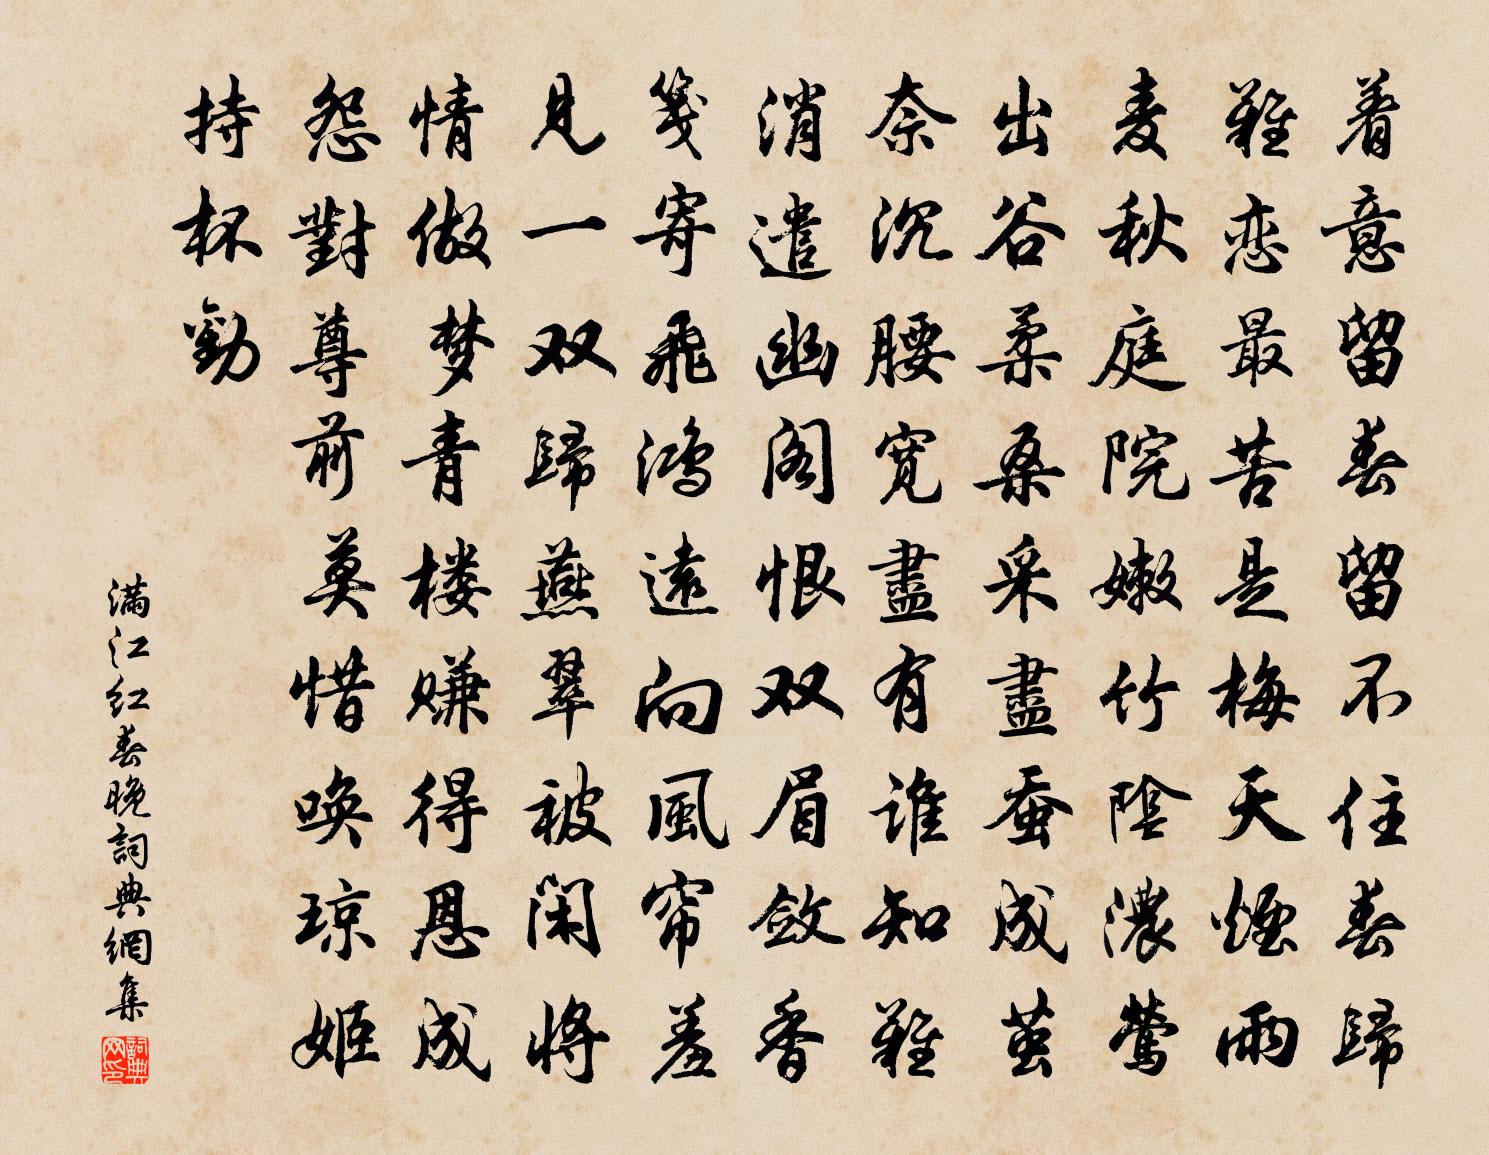 着意留春留不住春歸
難恋最苦是梅天煙雨
麦秋庭院嫩竹陰濃鶯
出谷柔桑采盡蚕成茧
奈沉腰宽盡有谁知難
消遣幽阁恨双眉敛香
笺寄飛鸿遠向風帘羞
見一双歸燕翠被闲将
情做梦青楼赚得恩成
怨對尊前莫惜唤琼姬
持杯勸
满江红春晚詞典網集
詞典网印